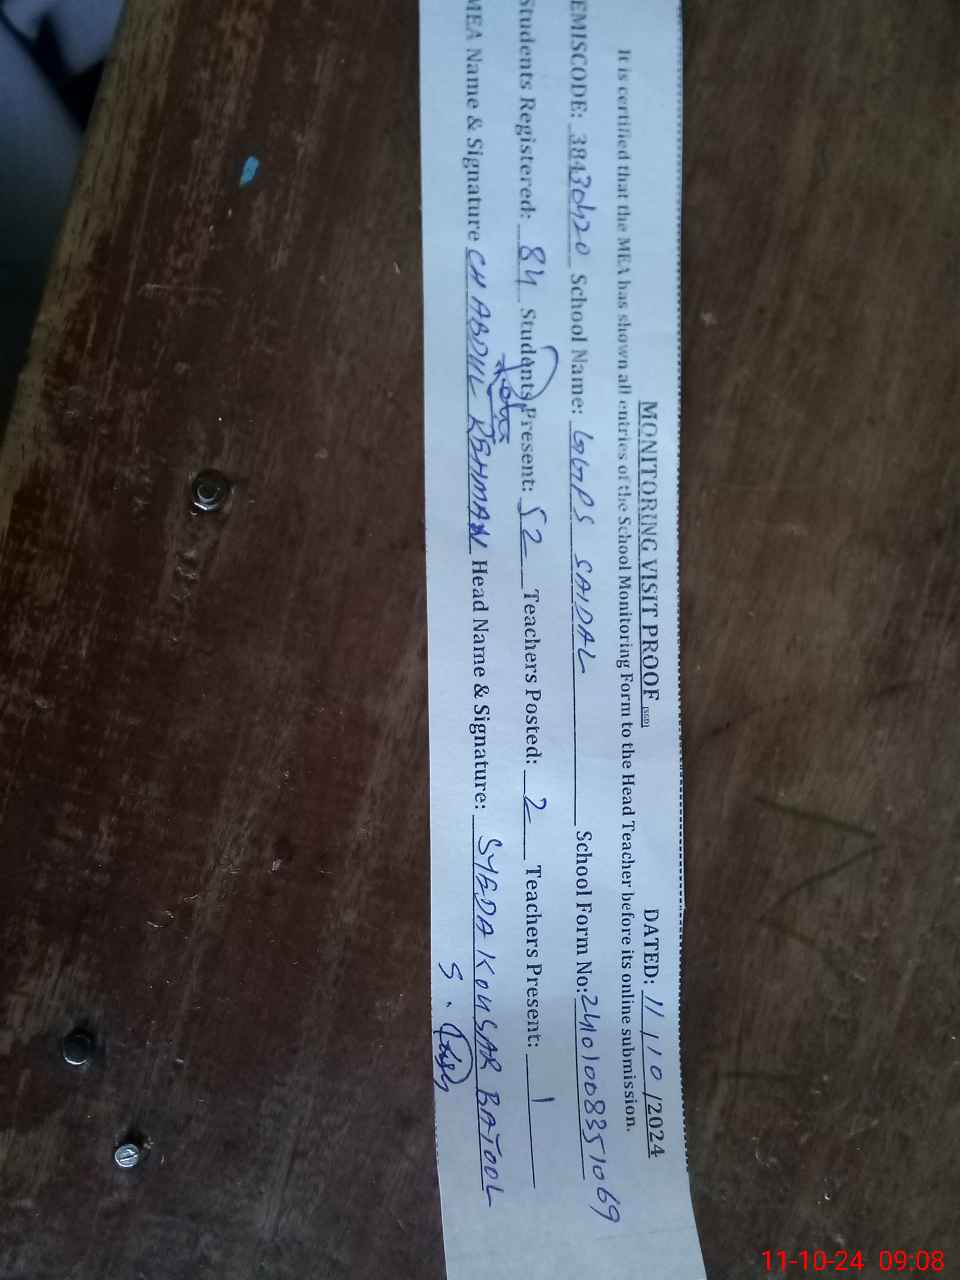 MONITORING VISIT PROOF (SGD) DATED: 11/10/2024
It is certified that the MEA has shown all entries of the School Monitoring Form to the Head Teacher before its online submission.
EMISCODE: 38430420 School Name: GGPS SAIDAL School Form No: 24101008351069
Students Registered: 84 Students Present: 52 Teachers Posted: 2 Teachers Present: 1
MEA Name & Signature CH ABDUL REHMAN Head Name & Signature: SYEDA KOUSAR BATOOL
11-10-24 09:08